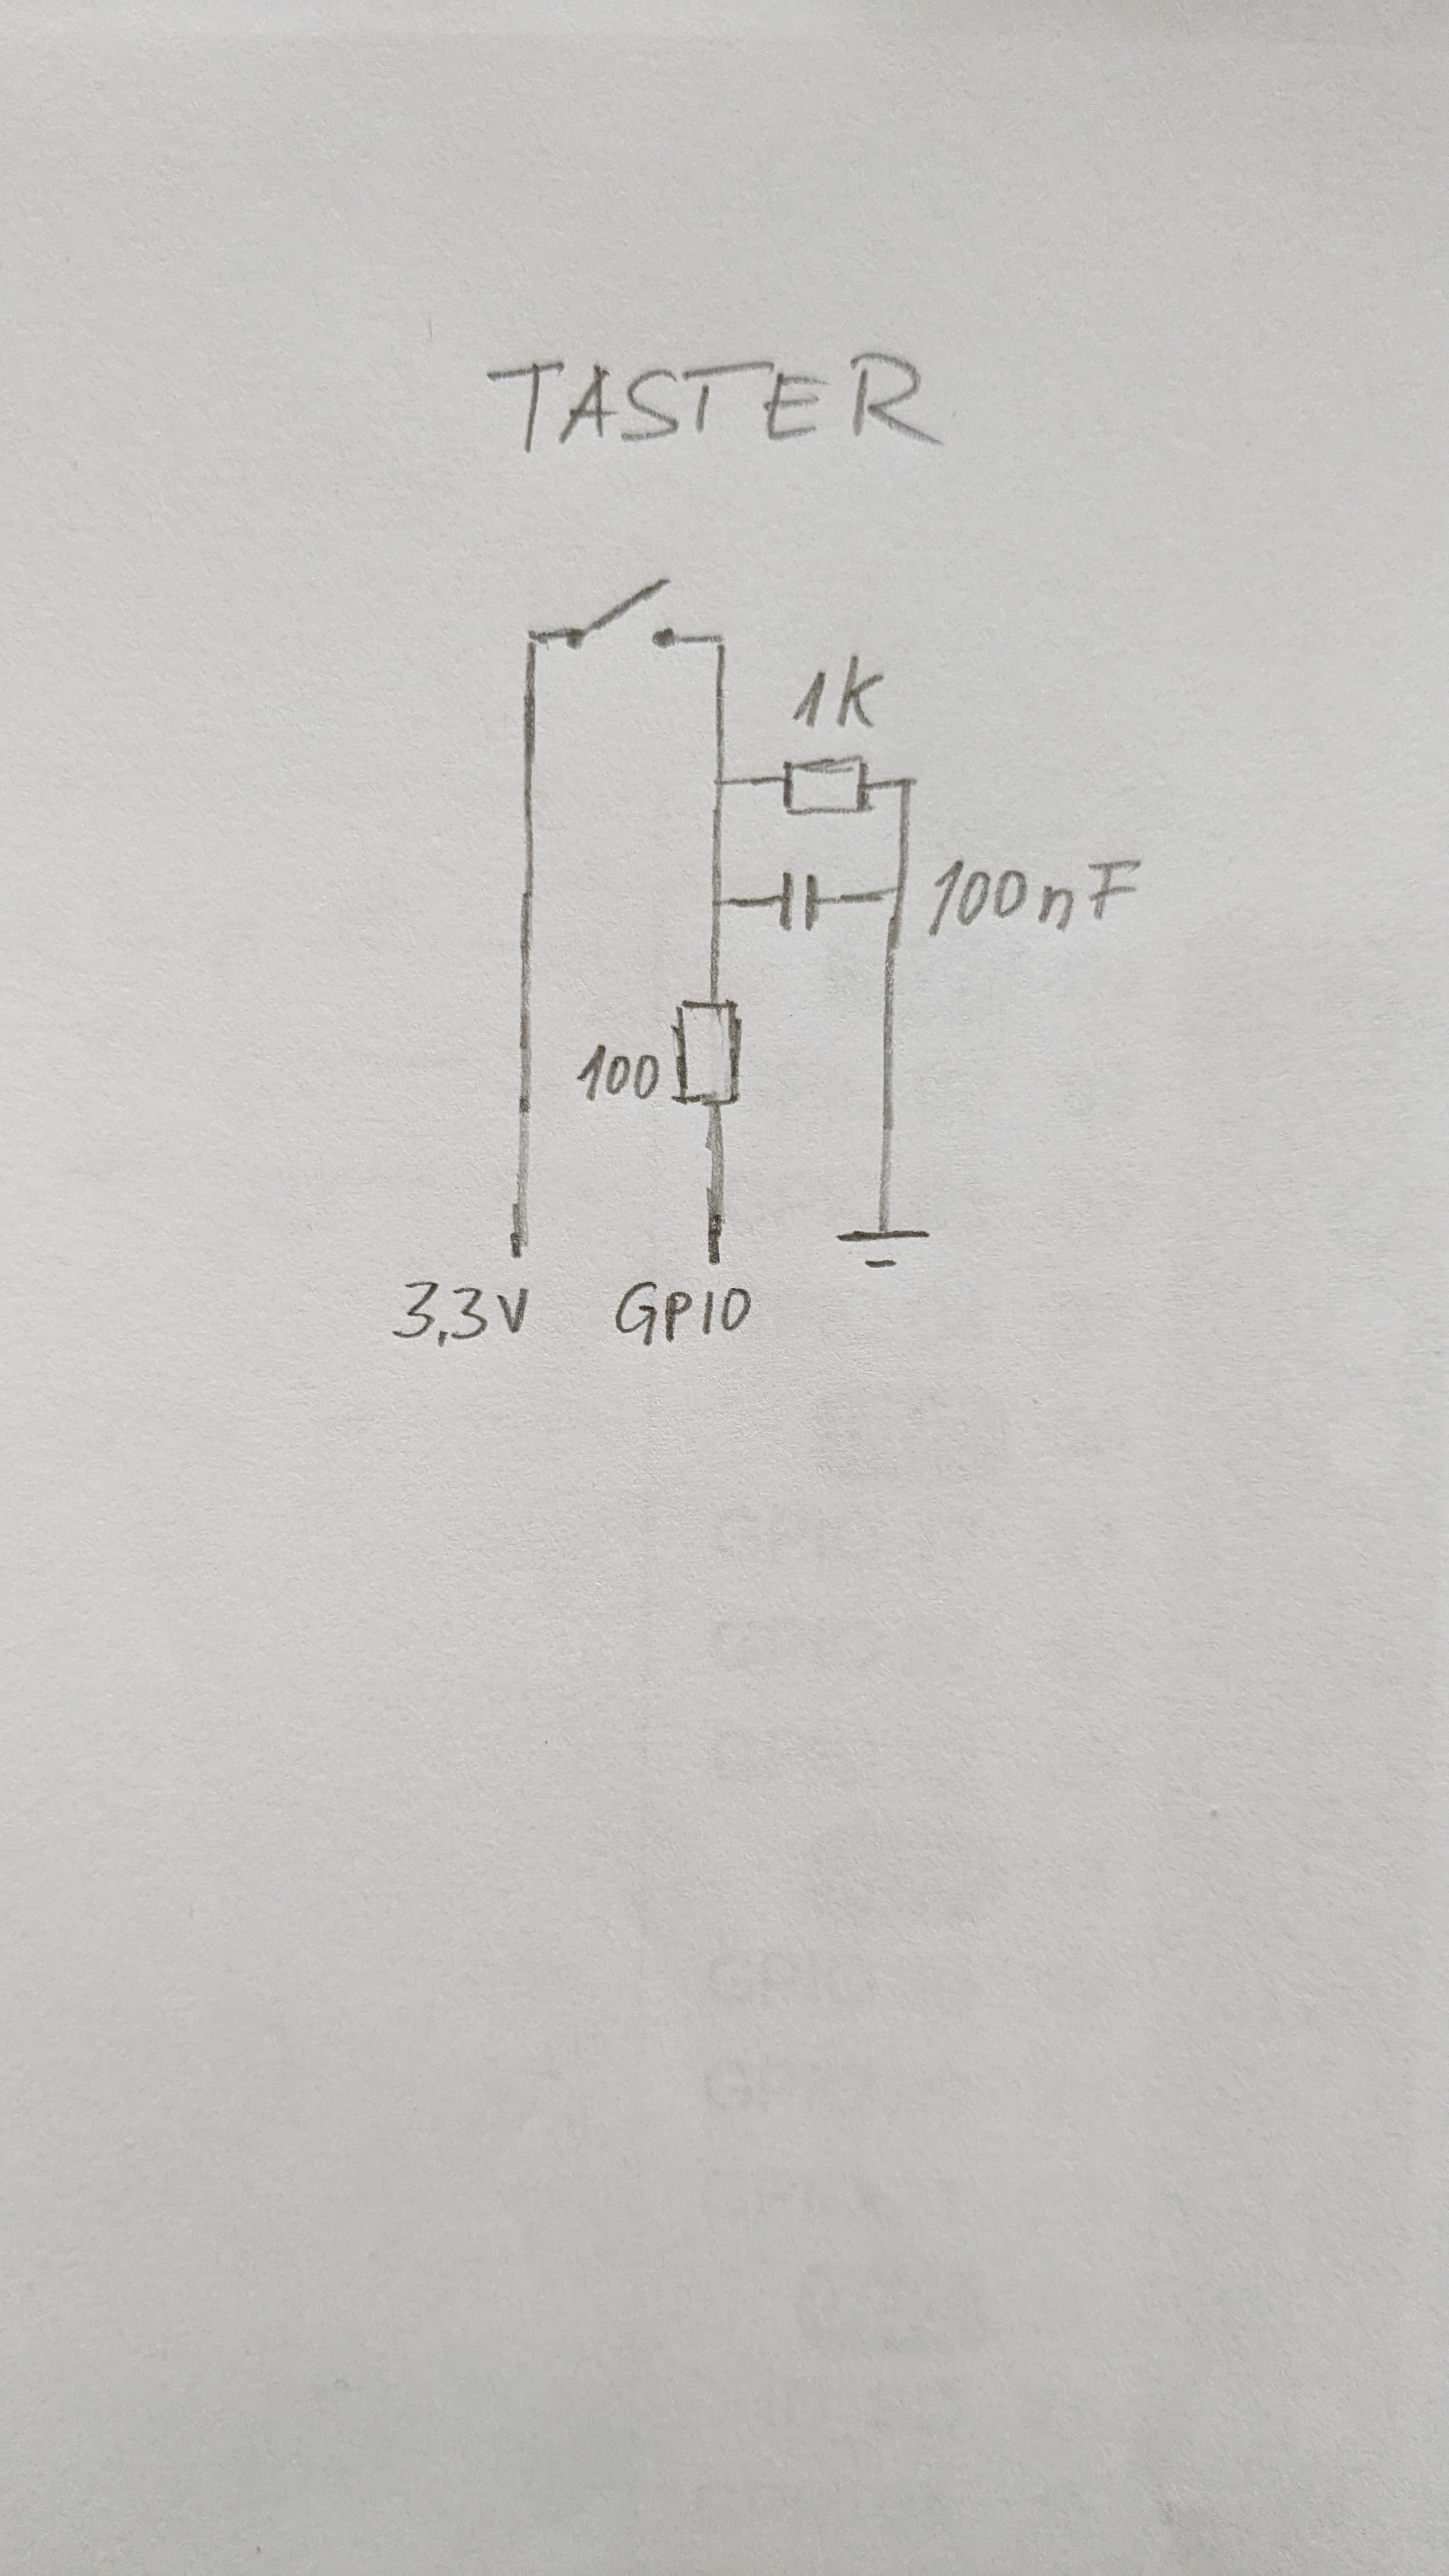 TASTER
1K
100nF
100
3,3V GPIO